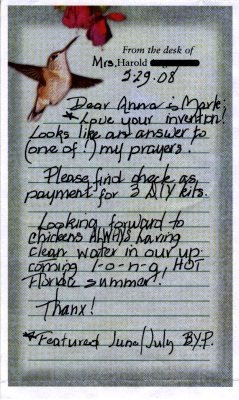 From the desk of
Mrs. Harold
5.29.08
Dear Anna & Mark,
* Love your invention!
Looks like an answer to
(one of!) my prayers!
Please find check as
payment for 3 DIY kits.
Looking forward to
chickens ALWAYS having
clean water in our up
coming l-o-n-g, HOT
Florida summer!
Thanx!
*Featured June/July B.Y.P.